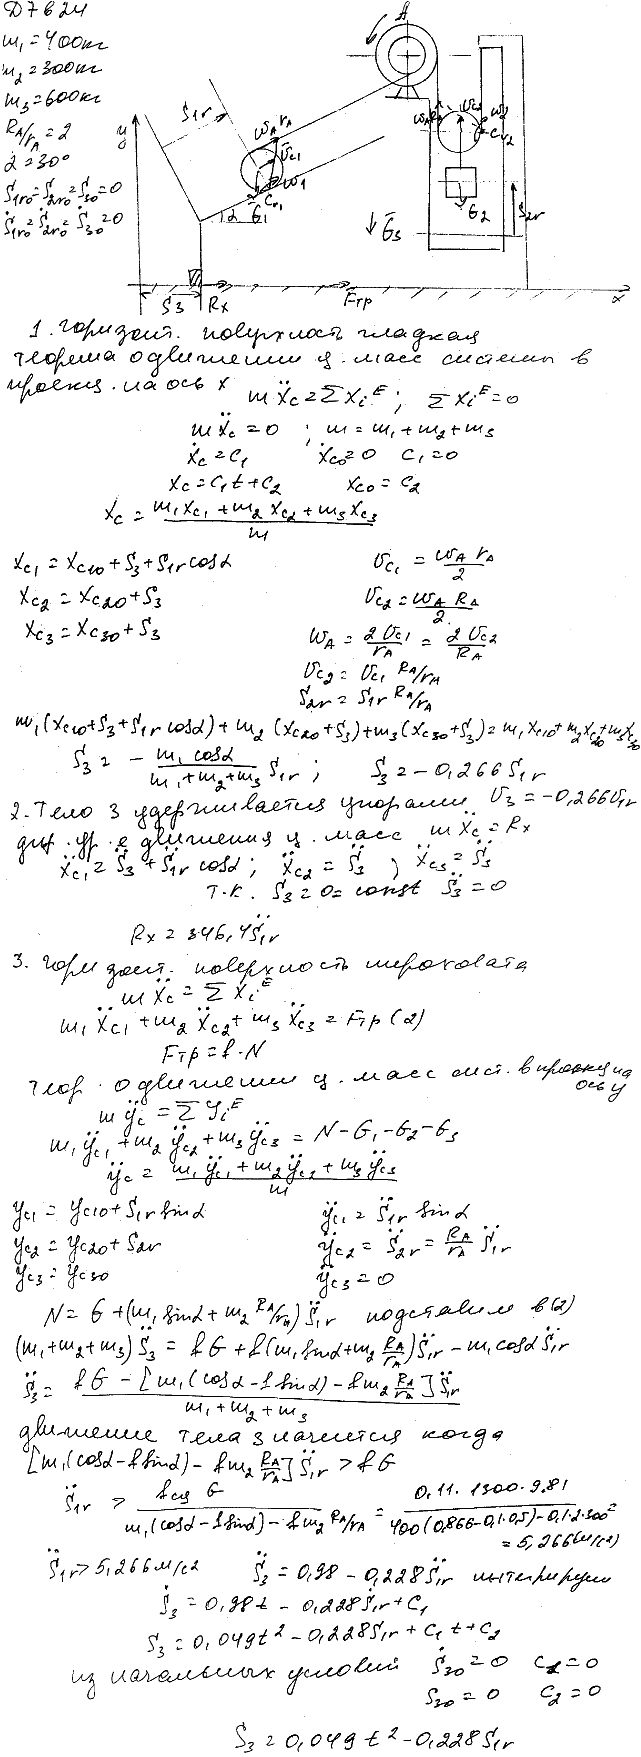 Д 7 В 24
m₁=400кг
m₂=300кг
m₃=600кг
R_A/r_A=2
α=30°
S₁r₀=S₂r₀=S₃₀=0
Ṡ₁r₀=Ṡ₂r₀=Ṡ₃₀=0
A
y
S₁r
ω_A r_A
V̄c₁
ω₁
C_V1
α
Ḡ₁
ω_A R_A
Vc₂
ω₂
C_V2
Ḡ₂
Ḡ₃
S₂r
S₃
Rx
Fтр
x
1. Горизонт. поверхность гладкая
теорема о движении ц. масс системы в
проекц. на ось x
mẍc=Σxiᴱ; Σxiᴱ=0
mẍc=0 ; m=m₁+m₂+m₃
ẋc=C₁ ẋc₀=0 C₁=0
xc=C₁t+C₂ xc₀=C₂
xc=(m₁xc₁+m₂xc₂+m₃xc₃)/m
xc₁=xc₁₀+S₃+S₁r cosα Vc₁=ω_A r_A/2
xc₂=xc₂₀+S₃ Vc₂=ω_A R_A/2
xc₃=xc₃₀+S₃ ω_A=2Vc₁/r_A=2Vc₂/R_A
Vc₂=Vc₁ R_A/r_A
S₂r=S₁r R_A/r_A
m₁(xc₁₀+S₃+S₁r cosα)+m₂(xc₂₀+S₃)+m₃(xc₃₀+S₃)=m₁xc₁₀+m₂xc₂₀+m₃xc₃₀
S₃=-m₁cosα/(m₁+m₂+m₃) S₁r; S₃=-0,266S₁r
2. Тело 3 удерживается упорами V₃=-0,266V₁r
диф. ур. е движения ц. масс mẍc=Rx
ẍc₁=S̈₃+S̈₁r cosα; ẍc₂=S̈₃; ẍc₃=S̈₃
т.к. S₃=0=const S̈₃=0
Rx=346,4S̈₁r
3. Горизонт. поверхность шероховата
mẍc=Σxiᴱ
m₁ẍc₁+m₂ẍc₂+m₃ẍc₃=Fтр (2)
Fтр=f·N
теор. о движении ц. масс сист. в проекц на ось y
mÿc=Σyiᴱ
m₁ÿc₁+m₂ÿc₂+m₃ÿc₃=N-G₁-G₂-G₃
ÿc=(m₁ÿc₁+m₂ÿc₂+m₃ÿc₃)/m
yc₁=yc₁₀+S₁r sinα ÿc₁=S̈₁r sinα
yc₂=yc₂₀+S₂r ÿc₂=S̈₂r=R_A/r_A S̈₁r
yc₃=yc₃₀ ÿc₃=0
N=G+(m₁sinα+m₂ R_A/r_A)S̈₁r подставим в(2)
(m₁+m₂+m₃)S̈₃=fG+f(m₁sinα+m₂ R_A/r_A)S̈₁r-m₁cosα S̈₁r
S̈₃=(fG-[m₁(cosα-f sinα)-fm₂ R_A/r_A]S̈₁r)/(m₁+m₂+m₃)
движение тела 3 начнется когда
[m₁(cosα-f sinα)-fm₂ R_A/r_A]S̈₁r>fG
S̈₁r>fсц G/(m₁(cosα-f sinα)-fm₂ R_A/r_A)=0,11·1300·9,81/(400(0,866-0,1·0,5)-0,1·2·300)=
=5,266м/с²)
S̈₁r>5,266м/с² S̈₃=0,98-0,228S̈₁r интегрируем
Ṡ₃=0,98t-0,228Ṡ₁r+C₁
S₃=0,049t²-0,228S₁r+C₁t+C₂
из начальных условий Ṡ₃₀=0 C₁=0
S₃₀=0 C₂=0
S₃=0,049t²-0,228S₁r